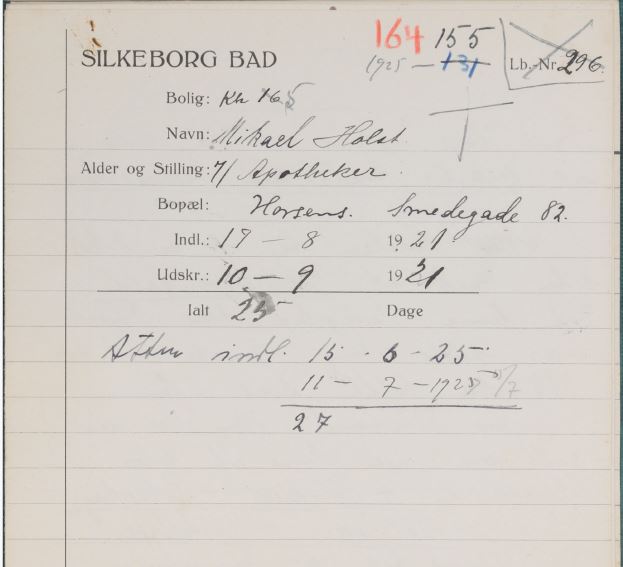 164 155
SILKEBORG BAD
1925 — 131
Lb.-Nr. 296.
Bolig: Kh 165
Navn: Mikael Holst
Alder og Stilling: 71 Apotheker.
Bopæl: Horsens. Smedegade 82.
Indl.: 17 — 8 1921
Udskr.: 10 — 9 1921
Ialt 25 Dage
indl. 15. 6 - 25.
11 — 7 — 1925
27